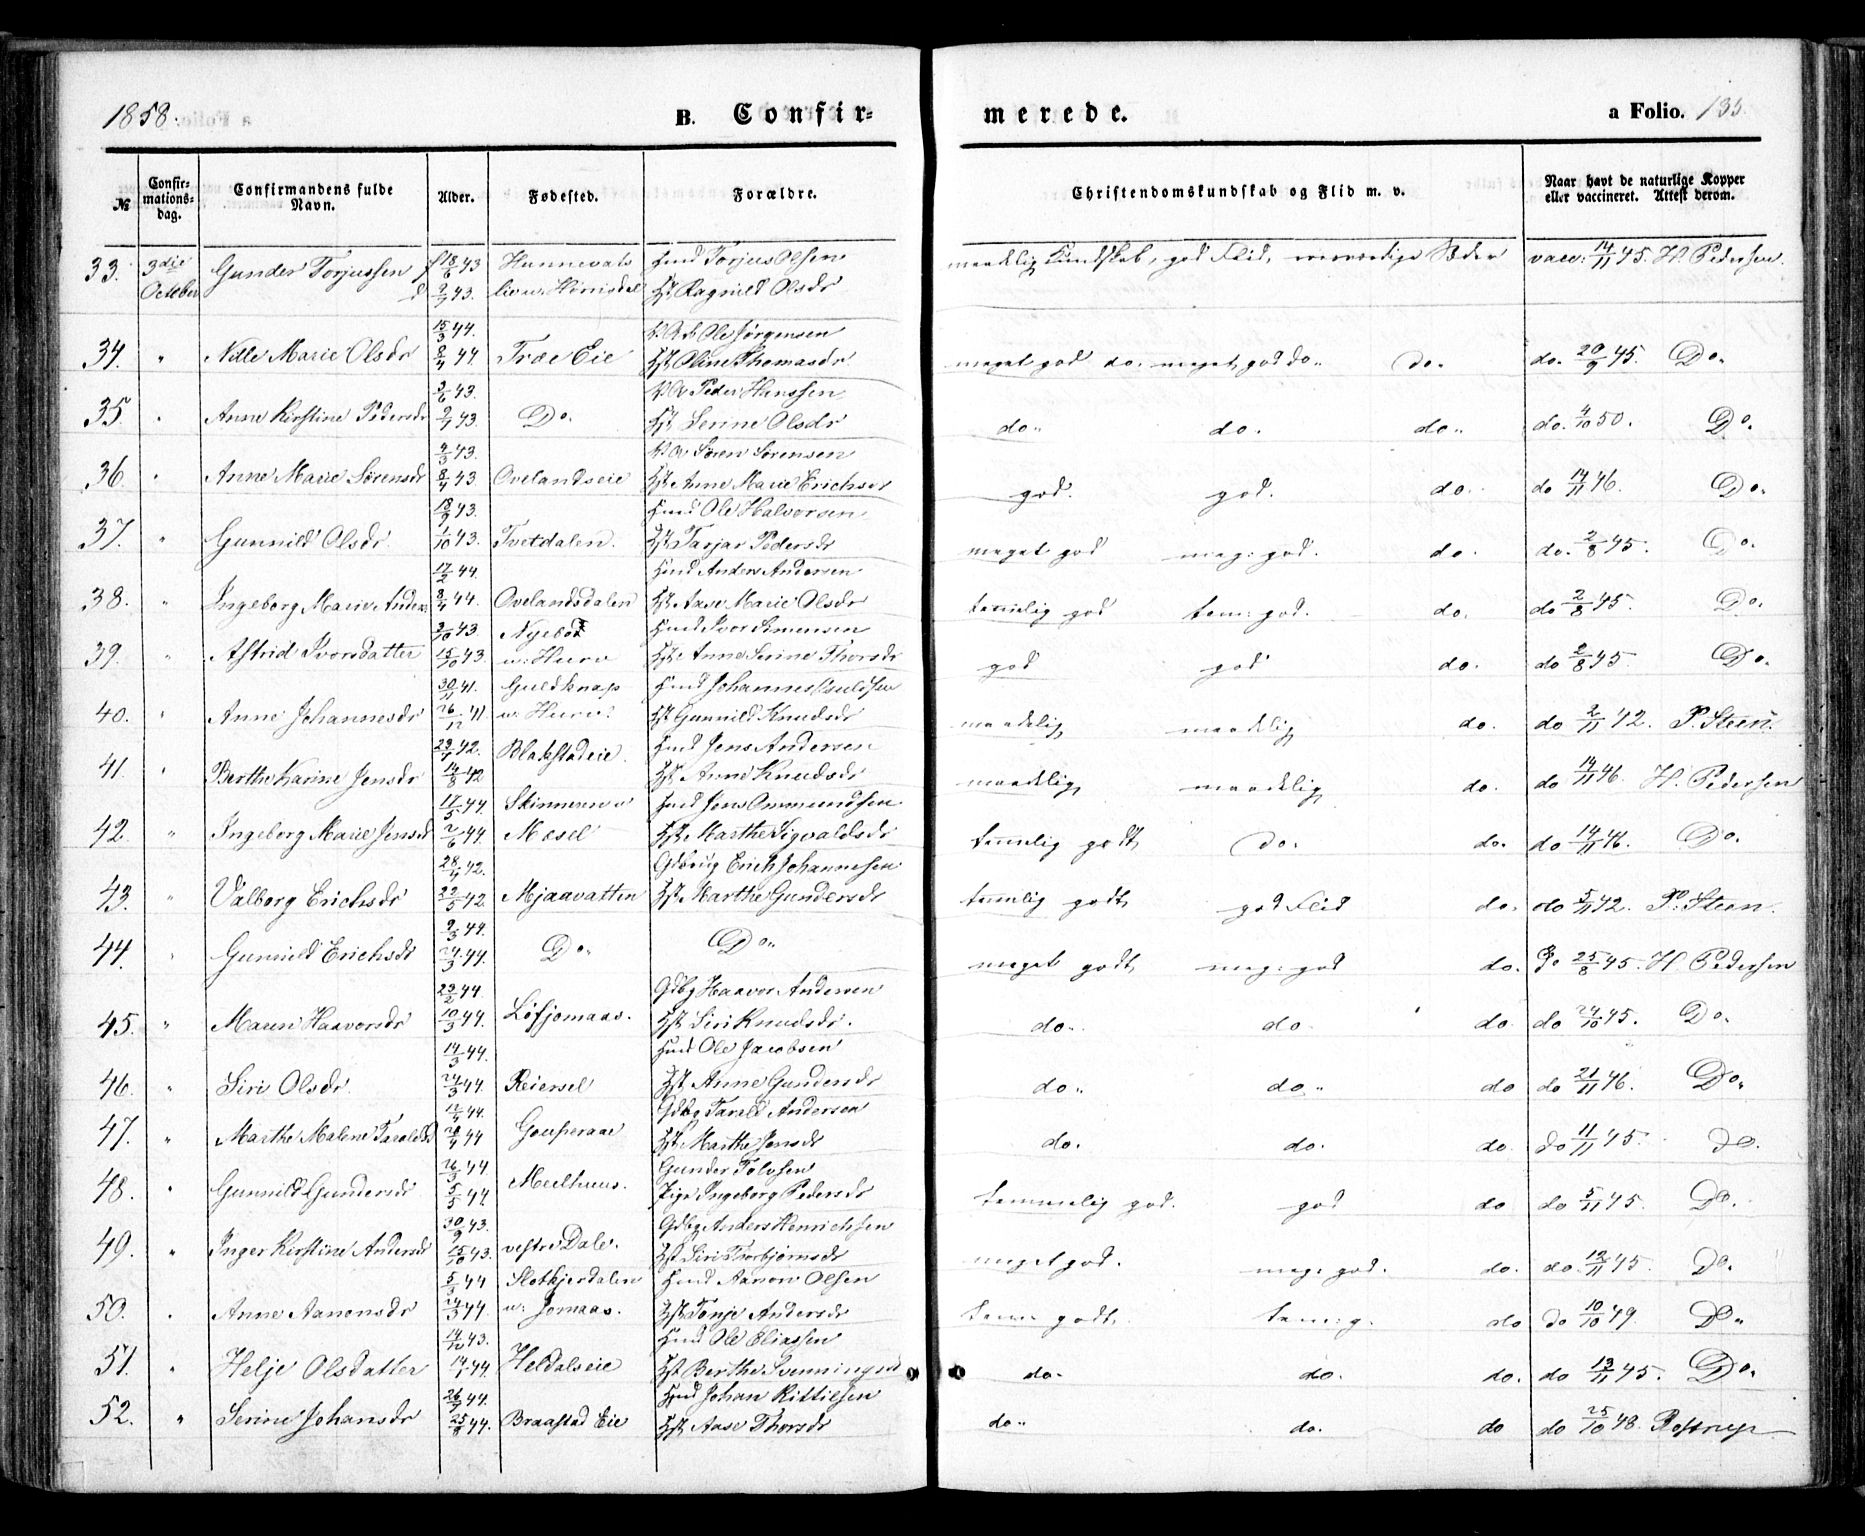 1858.
B. Confir=
merede.
a Folio. 135.
№
Confir=
mations=
dag.
Confirmandens fulde
Navn.
Alder.
Fødested.
Forældre.
Christendomskundskab og Flid m. v.
Naar havt de naturlige Kopper
eller vaccineret. Attest derom.
33. 3die October Gunder Torjussen f 18/6 43 d 2/7 43. Husmd Torjus Olsen Hst Ragnild Olsdr maadelig Kundskab, god Flid, Sæder vacc: 14/11 45. H. Pedersen.
34. " Nille Marie Olsdr 15/3 44. 8/4 44. Træ Eie Ole Jørgensen Hst Oline Thomasdr meget god do. meget god do.. do. do. 20/9 45. Do.
35 " Anne Kirstine Pedersdr 3/6 43. 9/7 43 Do. Peder Hansen Hst Senne Olsdr do.. do. do.. do. 4/10 50. Do.
36 " Anne Marie Sørensdr 4/3 43. 8/4 43 Ovelandseie Søren Sørensen Hst Anne Marie Erichsdr god. god. do. do 14/11 46. Do.
37. " Gunnild Olsdr 18/9 43. 1/10 43. Tvetdalen. Husmd Ole Halvorsen Hst Tarjar Pedersdr meget god meg: god. do. do. 2/8 45. Do.
38. " Ingeborg Marie Anders 17/2 44. 8/4 44. Ovelandsdalen Husmd Anders Andersen Hst Aase Marie Olsdr temmelig god tem: god. do. do 2/8 45. Do.
39. " Astrid Ivorsdatter 3/10 43. 15/10 43. Nyebod u: Hurv Husmd Ivor Simensen Hst Anne Serine Thorsdr god god do. do 2/8 45. Do.
40. " Anne Johannesdr 30/11 41. 26/12 41. Guldknap u: Hurv. Husmd Johannes Hst Gunnild Knudsdr maadelig maadelig do. do 2/11 42. P. Steen.
41. " Berthe Karine Jensdr 29/7 42. 14/8 42 Blakstadeie. Husmd Jens Andersen Hst Anne Knudsdr maadelig maadelig do. do 14/11 46. H. Pedersen
42. " Ingeborg Marie Jensd 17/5 44. 2/6 44. Mosel Husmd Jens Ommundsen Hst Marthe Sigvaldsdr temmelig godt do. do. do 14/11 46. Do.
43. " Valborg Erichsdr 28/4 42. 22/5 42. Mjaavatten Gdbrug Erich Johannesen Hst Marthe Gundersdr temmelig godt god Flid do. do 5/11 42. P. Steen.
44. " Gunnild Erichsdr 9/3 44. 24/3 44. Do.. Do.. meget godt meg: god do. Do 25/8 45. H. Pedersen
45. " Maren Haavorsdr 23/2 44. 10/3 44. Løfjomaas. Gdbg Haavor Andersen Hst Siri Knudsdr. do. do. do do 24/10 45. Do.
46. " Siri Olsdr 14/3 44. 24/3 44. Reiersel Husmd Ole Jacobsen Hst Anne Gundersdr do.. do.. do do 21/11 46. Do..
47. " Marthe Malene Taralds 12/4 44. 28/4 44 Gouperaae Gdbg Tarald Andersen Hst Marthe Jensdr do. do. do do 11/11 45. do.
48. " Gunnild Gundersdr 26/3 44 5/5 44. Meelhuus. Gunder Tolvsen Pige Ingeborg Pedersdr temmelig god. god do do 5/11 45. Do.
49. " Inger Kirstine Andersdr 30/9 43. 15/10 43. vestre Dale. Gdbg Anders Henrichsen Hst Siri Thorbjørnsdr meget god. meg: god. do. do. 12/11 45. Do.
50. " Anne Aanonsdr 5/3 44 24/3 44. Slotkjerdalen u: Jomaas. Husmd Aanon Olsen Hst Tonje Andersdr tem: godt. tem: g. do do 10/10 49 Do..
51. " Helje Olsdatter 14/10 43. 14/1 44. Heldalseie Husmd Ole Eliassen Hst Berthe Svenningsd do. do. do. do 13/11 45. Do.
52. " Serine Johansdr 26/7 44. 25/8 44. Braastad Eie Husmd Johan Kittilsen Hst Aase Thorsdr do.. do. do do 25/10 48. Rostrup